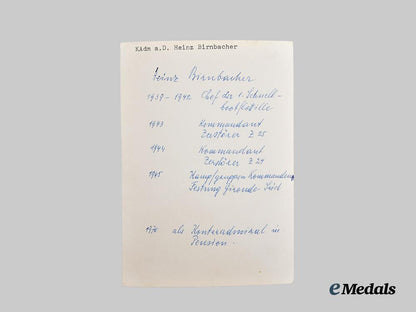 KAdm a.D. Heinz Birnbacher
Heinz Birnbacher
1939-1942 Chef der 1. Schnell-
bootflotille
1943 Kommandant
Zerstörer Z 25
1944 Kommandant
Zerstörer Z 24
1945 Kampfgruppen Kommandeur
Festung Gironde Süd
als Konteradmiral in
Pension.
eMedals